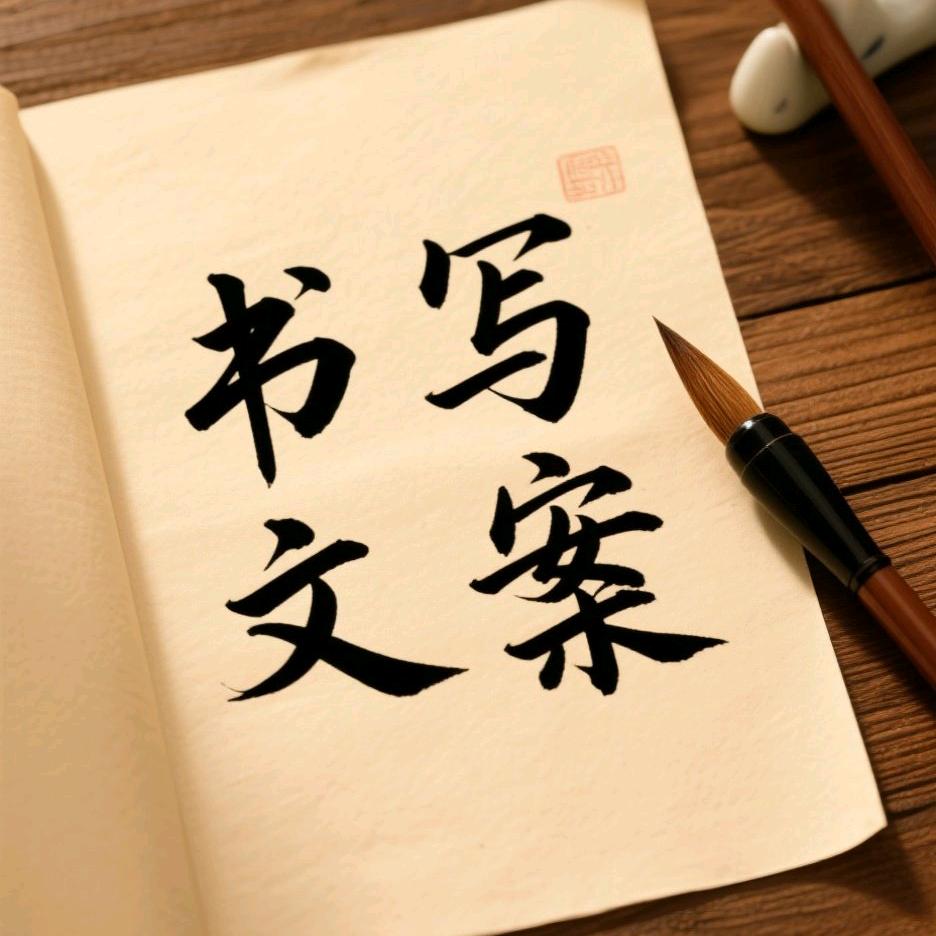 书写
文案